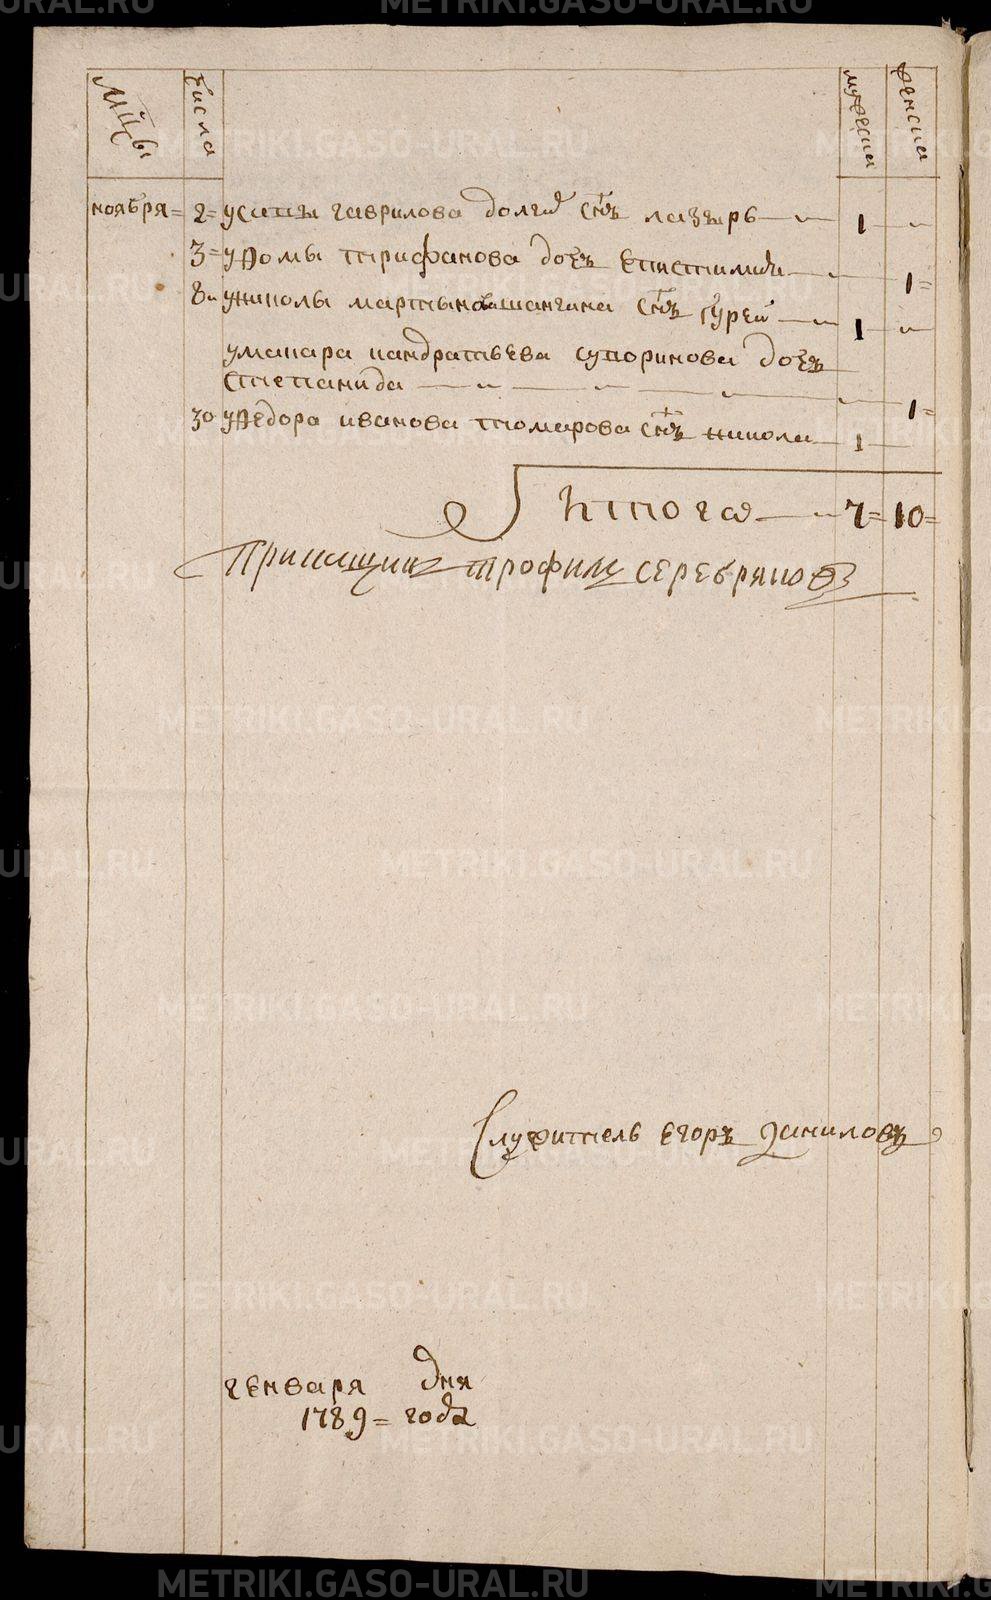 мцы числа мужеска женска
ноября= 2= у саввы гаврилова долгих снъ лазарь 1
3= у фомы трифанова дочь епистимия 1=
8 у николы мартынова шангина снъ гурей 1
у макара кандратьева супоринова дочь
степанида 1=
30 у федора иванова токмарова снъ никола 1
Итого 7= 10=
Прикащикъ трофимъ серебряков
Служитель егоръ даниловъ
генваря дня
1789= года
METRIKI.GASO-URAL.RU